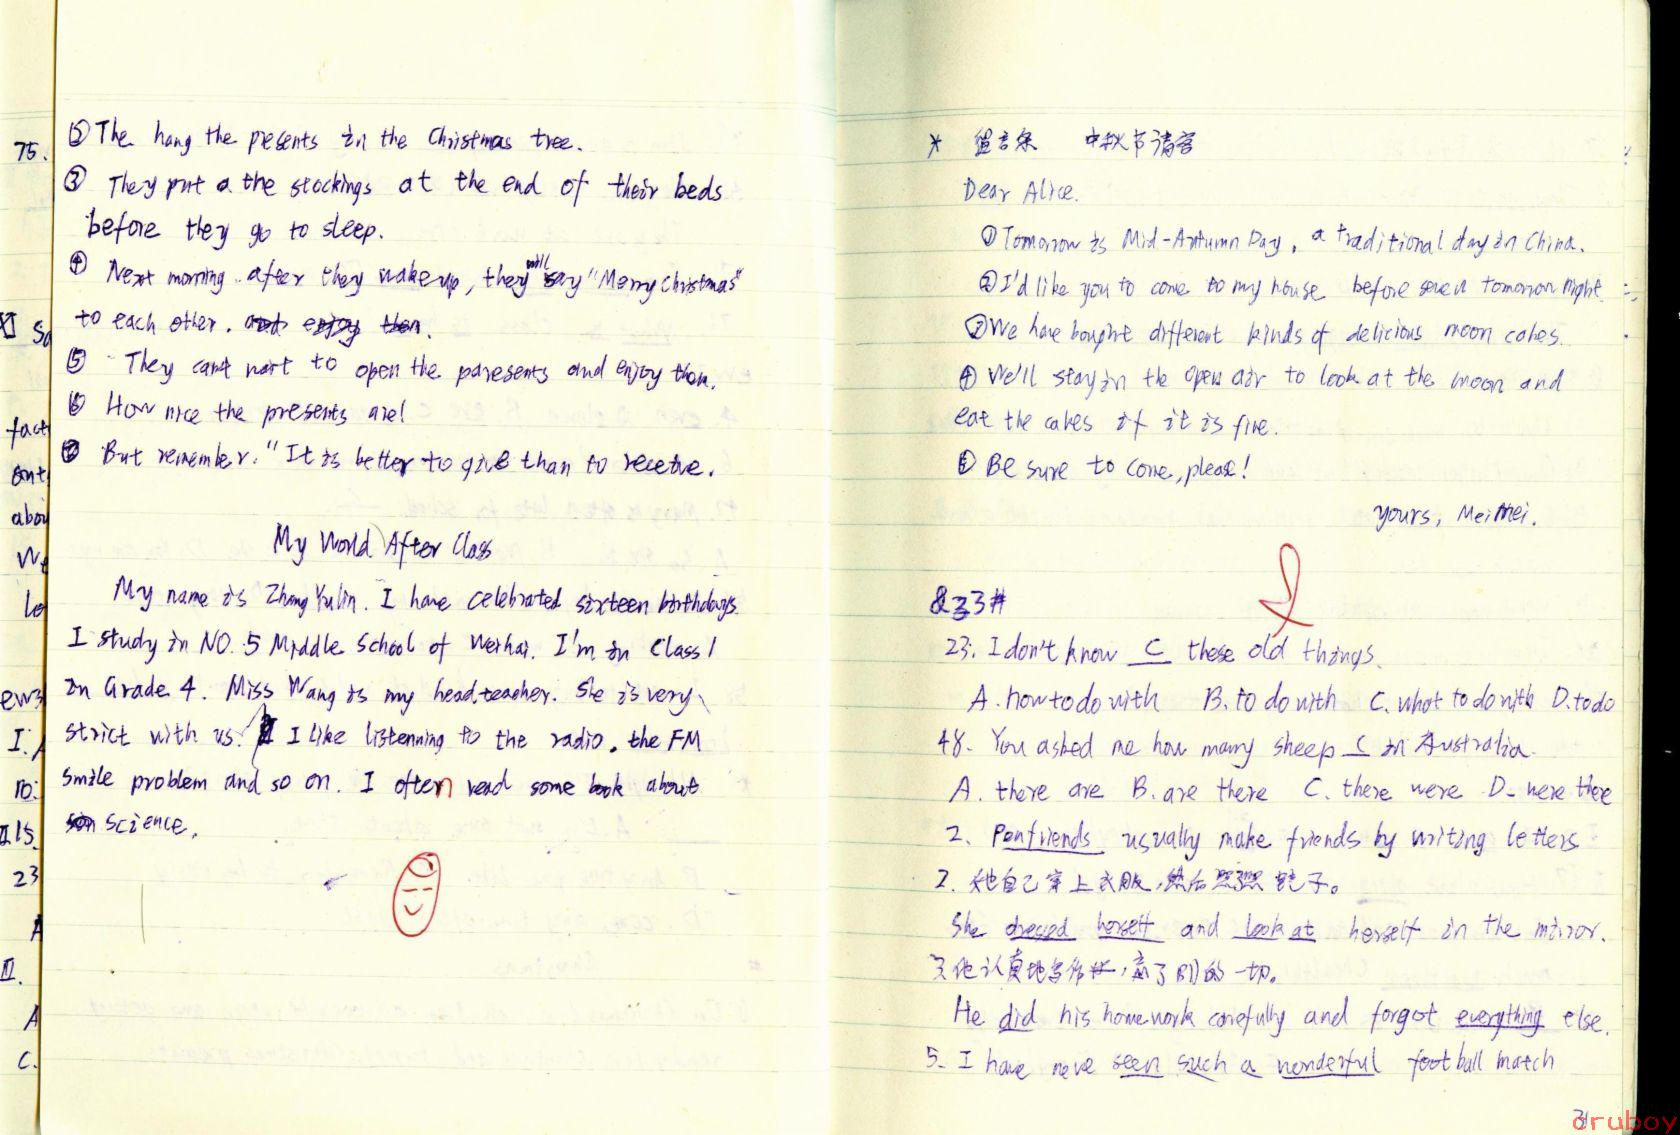 75.
② The hang the presents in the Christmas tree.
③ They put the stockings at the end of their beds
before they go to sleep.
④ Next morning. after they wake up, they will say "Merry Christmas"
to each other. and enjoy then.
⑤ They can't wart to open the paresents and enjoy them.
⑥ How nice the presents are!
⑦ But remember. "It is better to give than to receive.
My World After Class
My name is Zhang Yulin. I have celebrated sixteen birthdays
I study in NO. 5 Middle School of Weihai. I'm in Class 1
in Grade 4. Miss Wang is my headteacher. She is very
strict with us. I like listenning to the radio. the FM
Smile problem and so on. I often read some book about
science.
fact
abou
I.
23
A
II.
A
C.
* 留言条 中秋节请客
Dear Alice.
① Tomorrow is Mid-Autumn Day, a traditional day in China.
② I'd like you to come to my house before seven tomorrow night.
③ We have bought different kinds of delicious moon cakes.
④ We'll stay in the open air to look at the moon and
eat the cakes if it is fine.
⑤ Be sure to come, please!
yours, Meimei.
&33#
23. I don't know C these old things.
A. how to do with B. to do with C. what to do with D. to do
48. You asked me how many sheep C in Australia.
A. there are B. are there C. there were D. were there
2. Penfriends usually make friends by writing letters
2. 她自己穿上衣服，然后照照镜子。
She dressed herself and look at herself in the mirror.
3. 他认真地写作业，忘了别的一切。
He did his homework carefully and forgot everything else.
5. I have neve seen such a wonderful football match
31
druboy